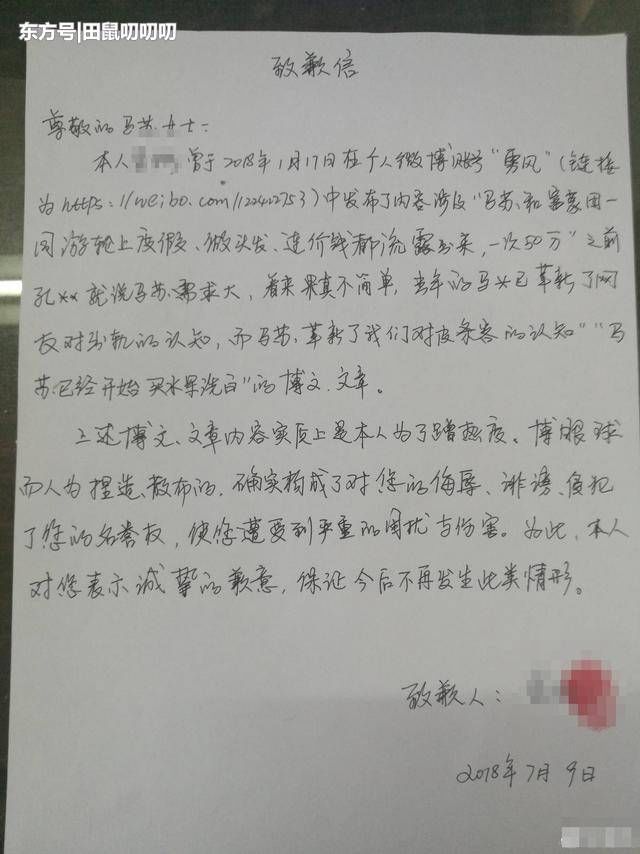 东方号|田鼠叨叨叨
致歉信
尊敬的马苏女士:
本人 曾于2018年1月17日在个人微博账号"勇风"(链接
为https://weibo.com/122412753)中发布了内容涉及"马苏和富豪团一
同游轮上度假、做头发、连价钱都流露出来,一次50万"之前
孔**就说马苏需求大,看来果真不简单,当年的马*已革新了网
友对出轨的认知,而马苏革新了我们对皮条客的认知""马
苏已经开始买水军洗白"的博文、文章。
上述博文、文章内容实质上是本人为了蹭热度、博眼球
而人为捏造、散布的,确实构成了对您的侮辱、诽谤、侵犯
了您的名誉权,使您遭受到严重的困扰与伤害。为此,本人
对您表示诚挚的歉意,保证今后不再发生此类情形。
致歉人:
2018年7月9日